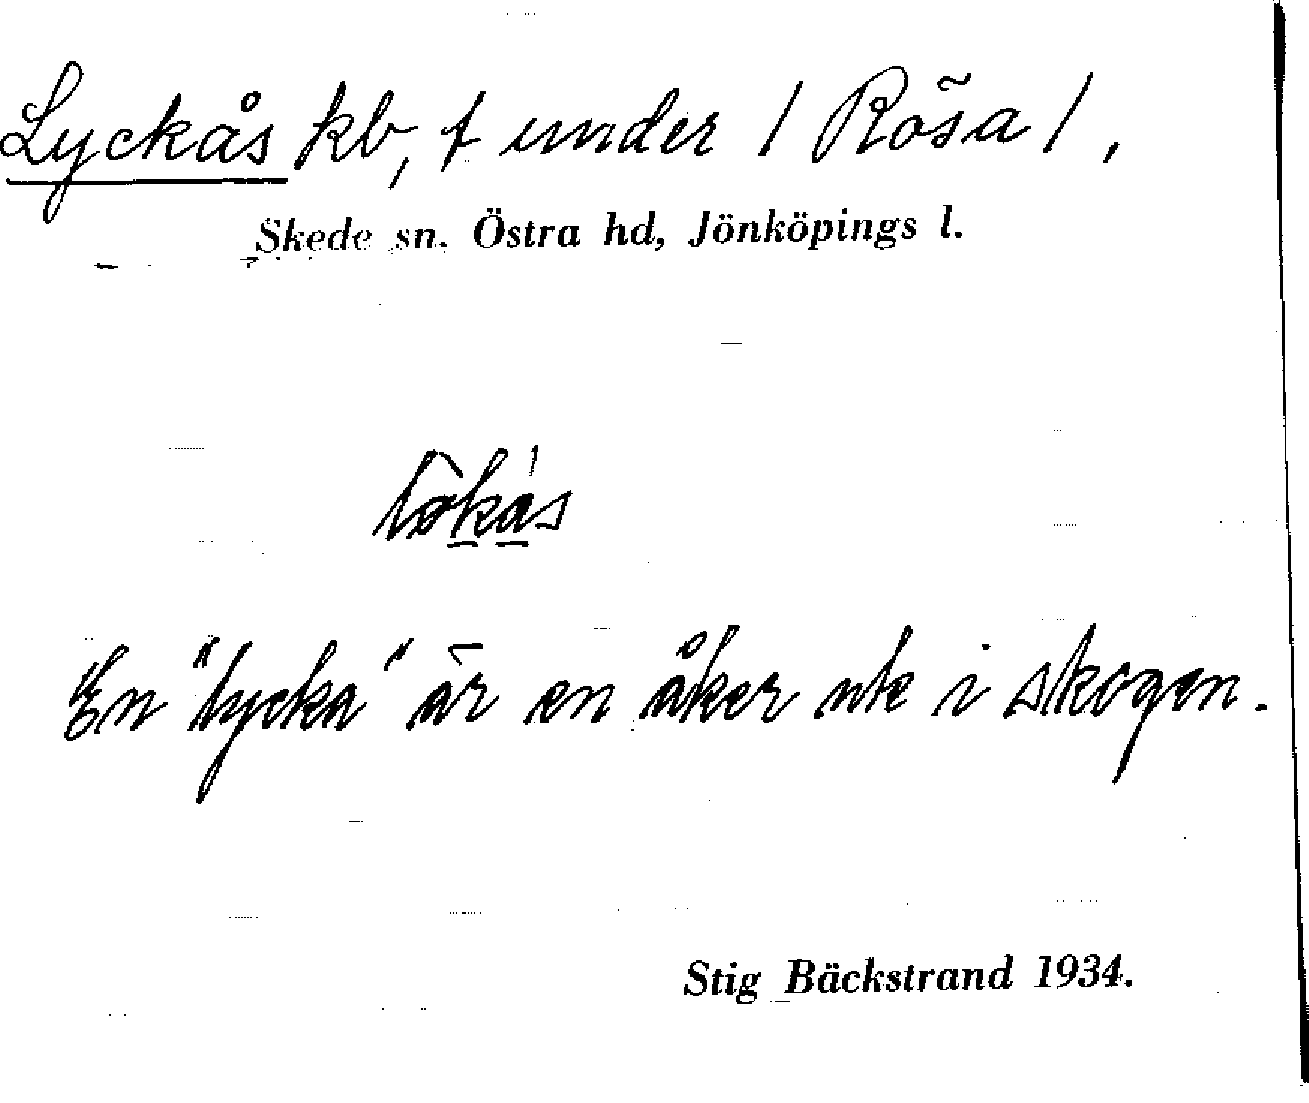 Lyckås kb, f under / Rösa /,
Skede sn. Östra hd, Jönköpings l.
En "lycka" är en åker ute i skogen.
Stig Bäckstrand 1934.